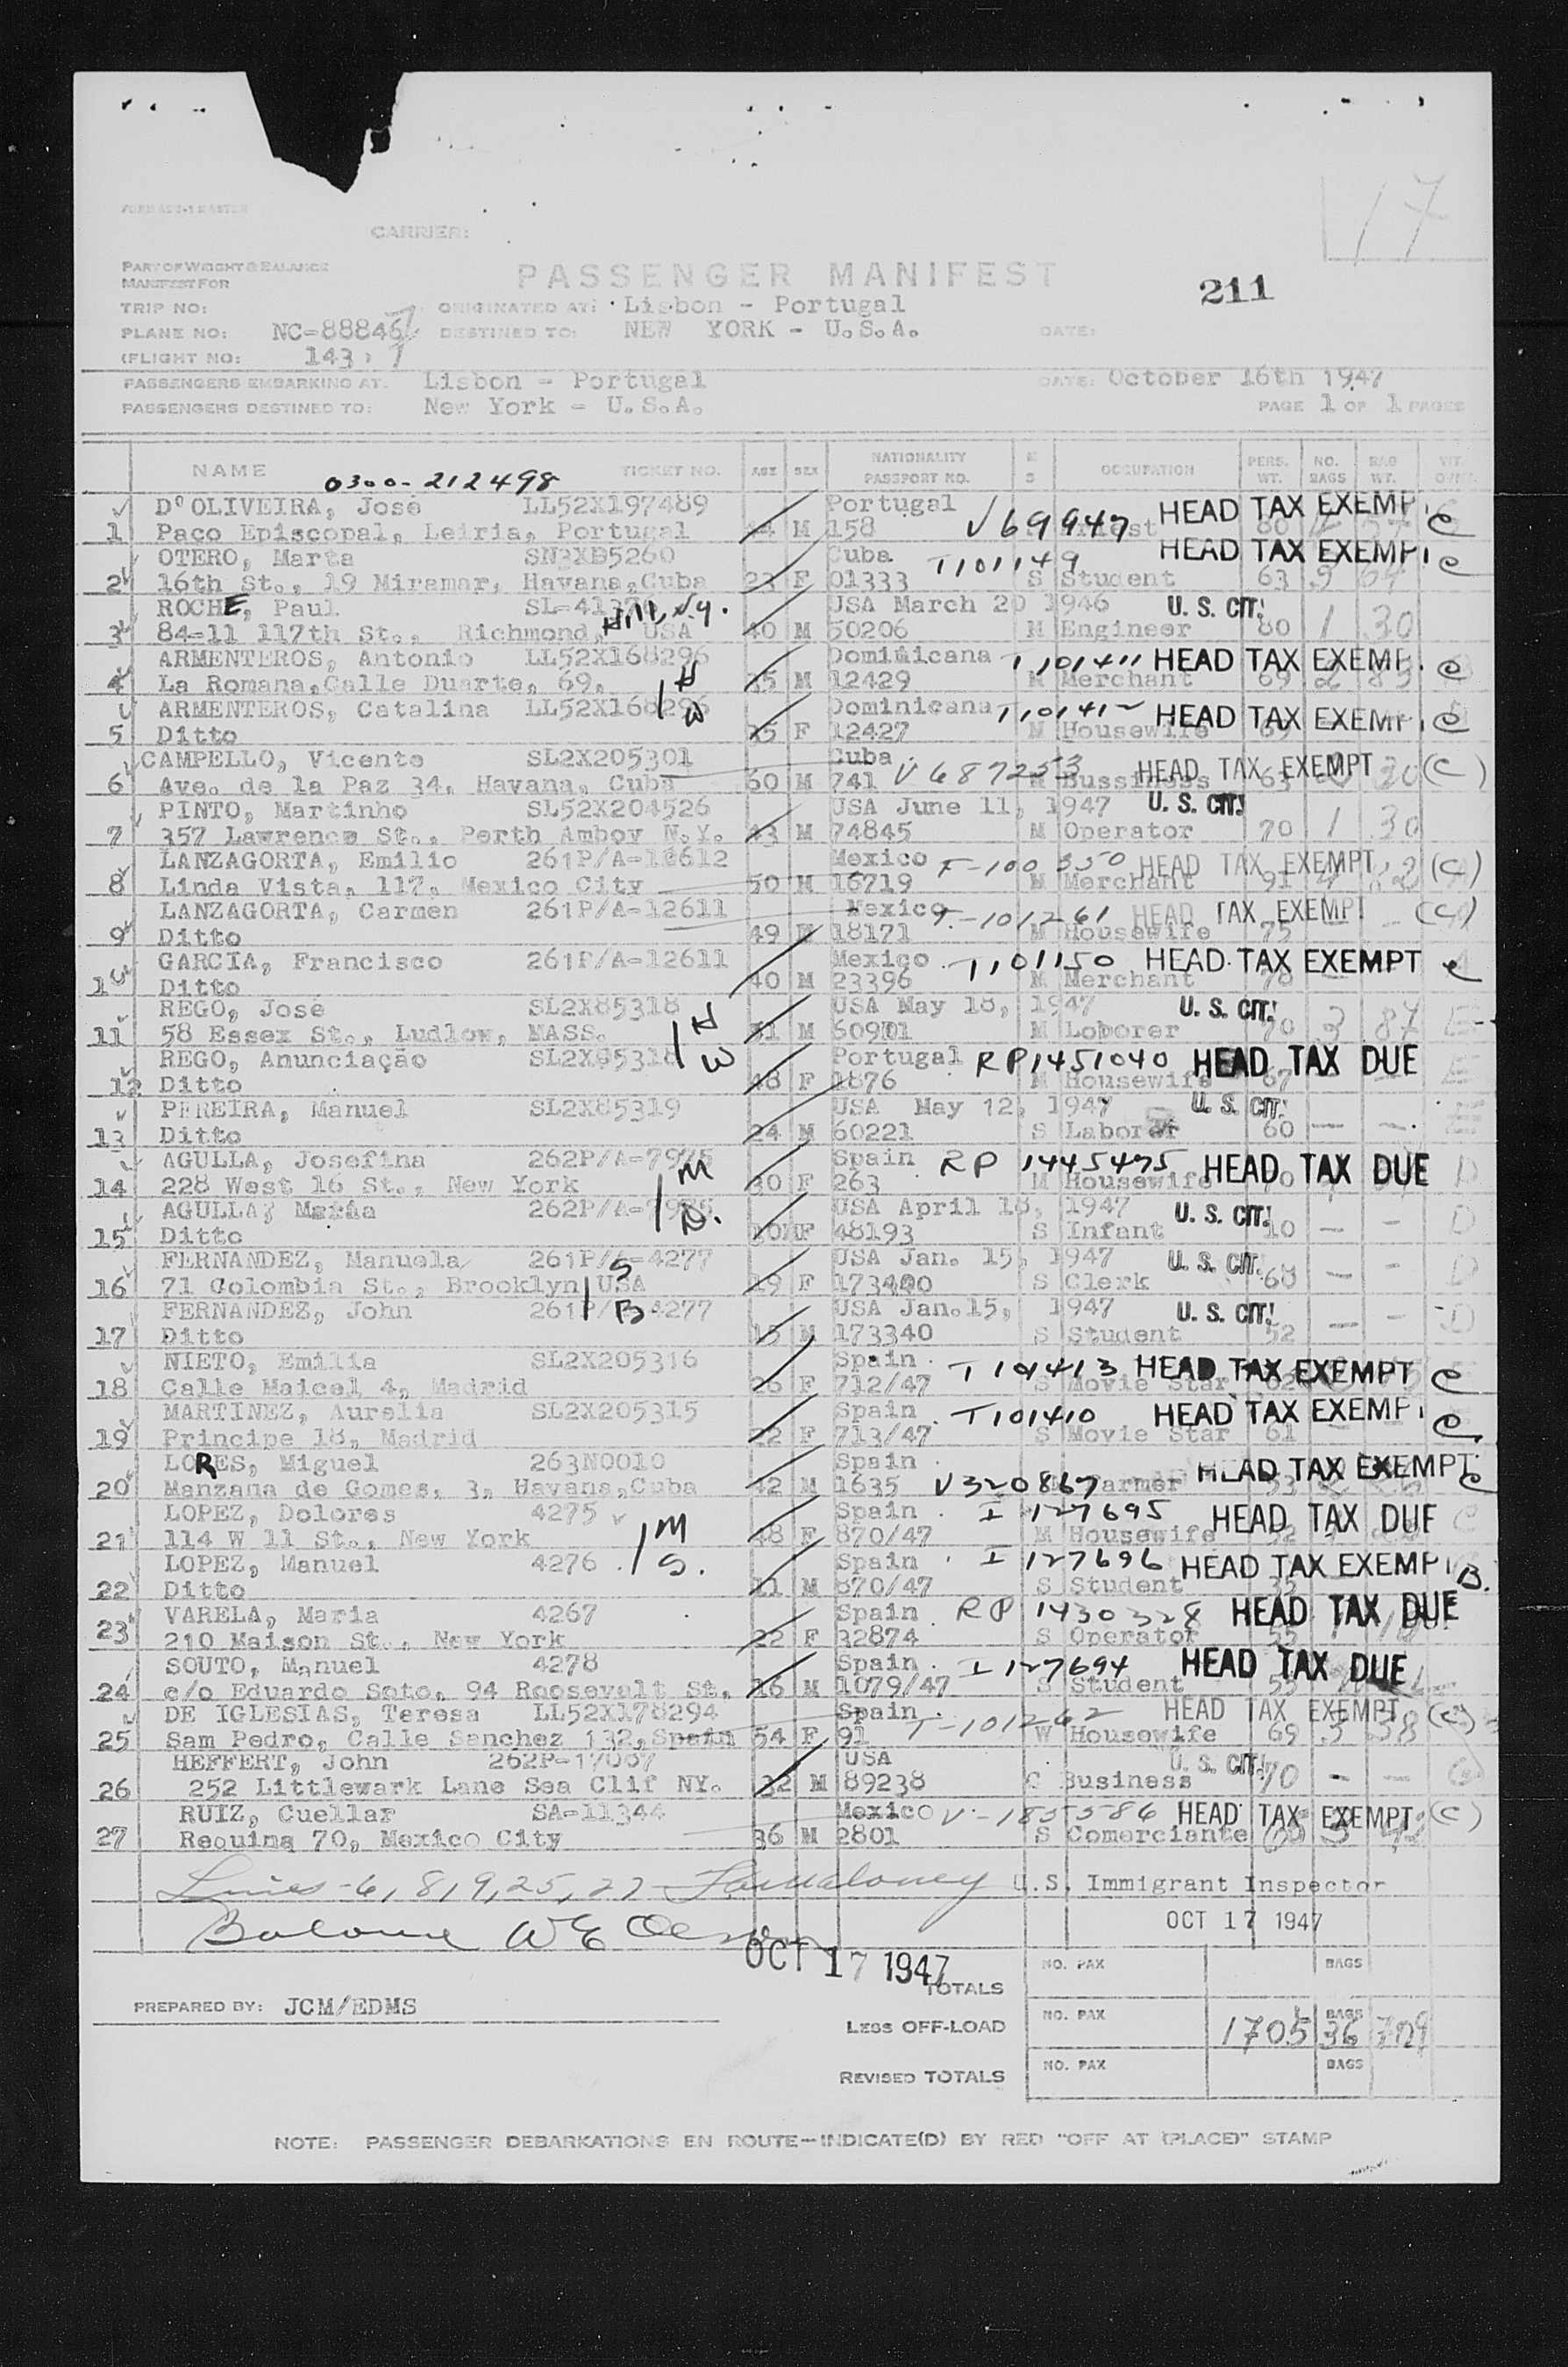 17
FORM 402-1 MASTER
CARRIER:
PART OF WEIGHT & BALANCE
MANIFEST FOR
PASSENGER MANIFEST
211
TRIP NO: ORIGINATED AT: Lisbon - Portugal
PLANE NO: NC-88846 DESTINED TO: NEW YORK - U.S.A. DATE:
(FLIGHT NO: 143
PASSENGERS EMBARKING AT: Lisbon - Portugal DATE: October 16th 1947
PASSENGERS DESTINED TO: New York - U.S.A. PAGE 1 OF 1 PAGES
NAME TICKET NO. AGE SEX NATIONALITY PASSPORT NO. M S OCCUPATION PERS. WT. NO. BAGS BAG WT.
0300-212498
D'OLIVEIRA, José LL52X197489 Portugal HEAD TAX EXEMP
1 Paço Episcopal, Leiria, Portugal M 158 V69947 e
OTERO, Marta SN2XB5260 Cuba T101149 HEAD TAX EXEMP e
2 16th St., 19 Miramar, Havana, Cuba 23 F 01333 S Student 63
ROCHE, Paul SL=41376 USA March 20 1946 U. S. CIT.
3 84-11 117th St., Richmond, Hill, N.y. USA 40 M 50206 M Engineer 80 1 30
ARMENTEROS, Antonio LL52X168296 Dominicana T101411 HEAD TAX EXEMP. e
4 La Romana, Calle Duarte, 69, H 35 M 12429 M Merchant 69
ARMENTEROS, Catalina LL52X168296 Dominicana T101412 HEAD TAX EXEMP e
5 Ditto W F 12427 M Housewife
CAMPELLO, Vicente SL2X205301 Cuba HEAD TAX EXEMPT
6 Ave. de la Paz 34, Havana, Cuba 60 M 741 V687253 M Bussiness 63 (C)
PINTO, Martinho SL52X204526 USA June 11, 1947 U. S. CIT.
7 357 Lawrence St., Perth Amboy N.Y. 43 M 74845 M Operator 70 1 30
LANZAGORTA, Emilio 261P/A-12612 Mexico T-100350 HEAD TAX EXEMPT (C)
8 Linda Vista, 117, Mexico City 50 M 16719 M Merchant 91
LANZAGORTA, Carmen 261P/A-12611 Mexico T-101261 HEAD TAX EXEMPT (C)
9 Ditto 49 18171 M Housewife 75
GARCIA, Francisco 261P/A-12611 Mexico T101150 HEAD TAX EXEMPT e
10 Ditto 40 M 23396 M Merchant
REGO, José SL2X85318 USA May 18, 1947 U. S. CIT.
11 58 Essex St., Ludlow, MASS. H M M Loborer 3 87
REGO, Anunciação SL2X85318 Portugal RP1451040 HEAD TAX DUE
12 Ditto W 48 F 1876 M Housewife 67
PEREIRA, Manuel SL2X85319 USA May 12, 1947 U. S. CIT.
13 Ditto 24 M 60221 S Laborer 60
AGULLA, Josefina 262P/A=7975 Spain RP 1445475 HEAD TAX DUE
14 228 West 16 St., New York M 30 F 263 M Housewife D
AGULLA, María 262P/A=7975 USA April 18, 1947 U. S. CIT.
15 Ditto D. F 48193 S Infant 10 D
FERNANDEZ, Manuela 261P/A=4277 USA Jan. 15, 1947 U. S. CIT.
16 71 Colombia St., Brooklyn USA S 19 F S Clerk 60 D
FERNANDEZ, John 261P/A-4277 USA Jan.15, 1947 U. S. CIT.
17 Ditto B 15 M 173340 S Student 52 D
NIETO, Emilia SL2X205316 Spain T101413 HEAD TAX EXEMPT e
18 Calle Maicel 4, Madrid 26 F 712/47 S Movie Star
MARTINEZ, Aurelia SL2X205315 Spain T101410 HEAD TAX EXEMP e
19 Principe 18, Madrid 22 F 713/47 S Movie Star 61
LORES, Miguel 263N0010 Spain HEAD TAX EXEMPT e
20 Manzana de Gomes, 3, Havana, Cuba 42 M 1635 V320867 Farmer 53
LOPEZ, Dolores 4275 Spain I 127695 HEAD TAX DUE
21 114 W 11 St., New York M 48 F 870/47 M Housewife
LOPEZ, Manuel 4276 Spain I 127696 HEAD TAX EXEMPT B.
22 Ditto S. 11 M 870/47 S Student 35
VARELA, Maria 4267 Spain RP 1430328 HEAD TAX DUE
23 210 Maison St., New York 22 F 32874 S Operator 55
SOUTO, Manuel 4278 Spain I 127694 HEAD TAX DUE
24 c/o Eduardo Soto, 94 Roosevelt St. 16 M 1079/47 S Student 55
DE IGLESIAS, Teresa LL52X178294 Spain T-101262 HEAD TAX EXEMPT (C)
25 Sam Pedro, Calle Sanchez 132, Spain 54 F 91 W Housewife 69 3 38
HEFFERT, John 262P-17067 USA U. S. CIT.
26 252 Littlewark Lane Sea Clif NY. 32 M 89238 Business 70
RUIZ, Cuellar SA=11344 Mexico V-1855586 HEAD TAX EXEMPT (C)
27 Requina 70, Mexico City 36 M 2801 S Comerciante
Lines - 6, 8, 9, 25, 27 U.S. Immigrant Inspector
OCT 17 1947
Balance
OCT 17 1947
TOTALS NO. PAX BAGS
PREPARED BY: JCM/EDMS
LESS OFF-LOAD NO. PAX 1705 BAGS 36
REVISED TOTALS NO. PAX BAGS
NOTE: PASSENGER DEBARKATIONS EN ROUTE—INDICATE(D) BY RED "OFF AT (PLACE)" STAMP